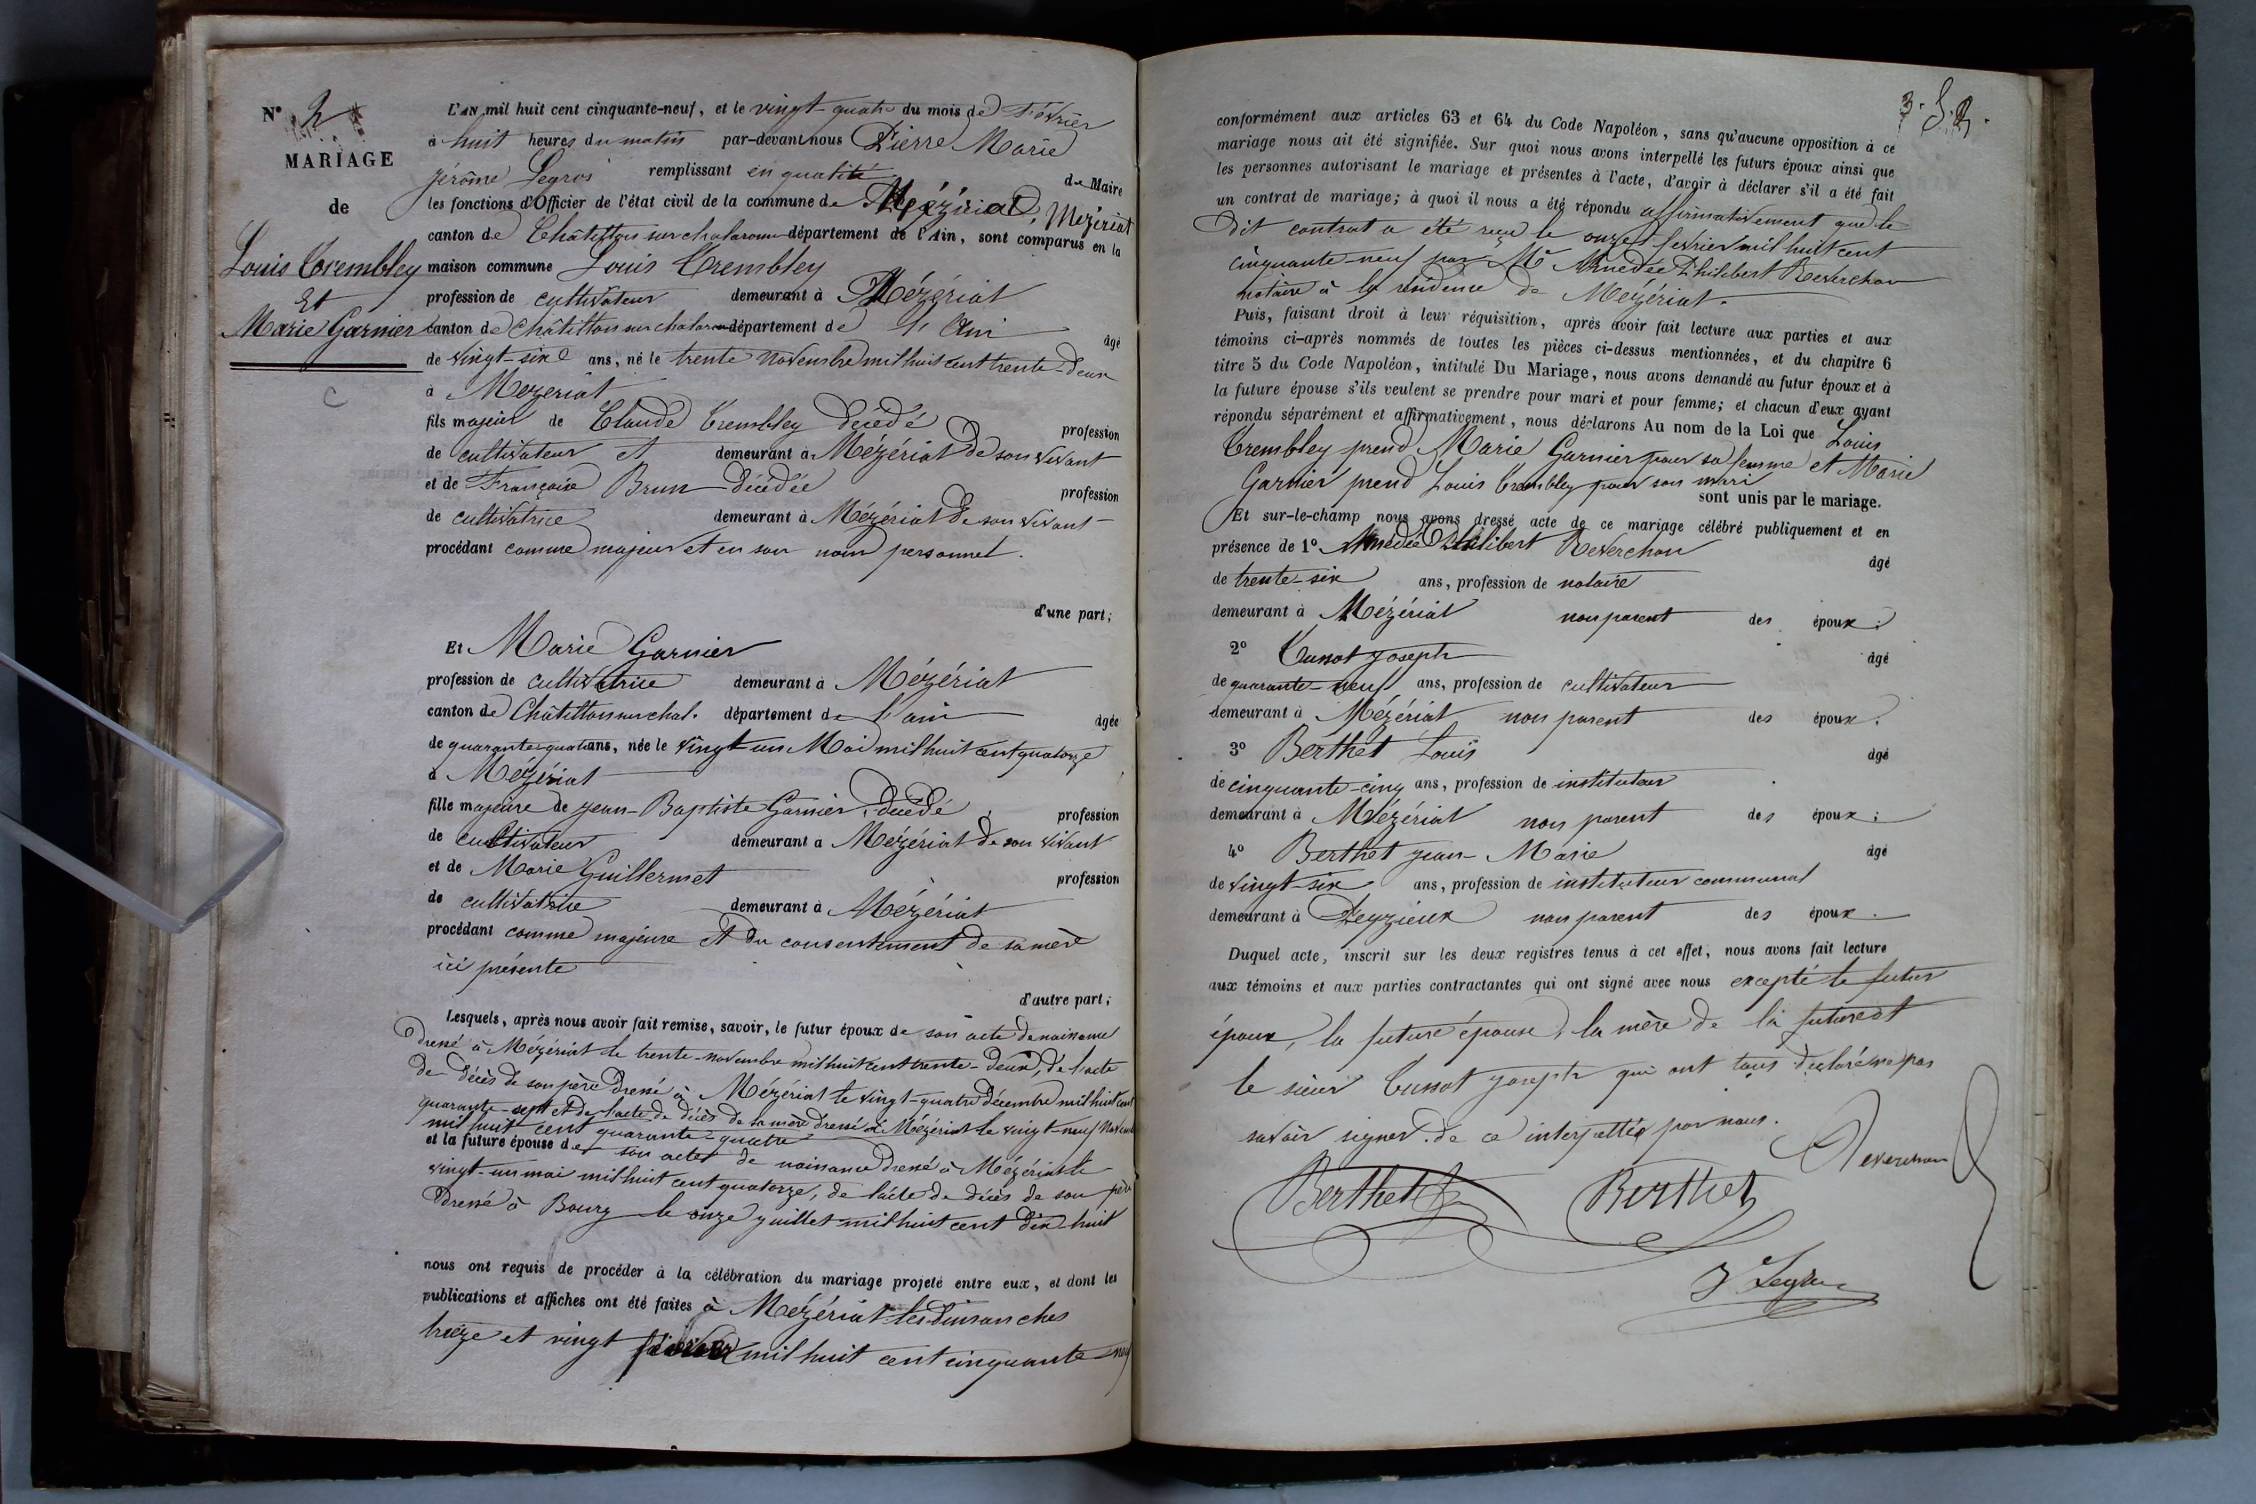 N° 2
MARIAGE
de
Louis Trembley
Et
Marie Garnier
L'AN mil huit cent cinquante-neuf, et le vingt-quatre du mois de Février
à huit heures du matin par-devant nous Pierre Marie
jérôme Legros remplissant en qualité de Maire
les fonctions d'Officier de l'état civil de la commune de Mézériat, Mézériat
canton de Châtillon sur chalaronne département de l'Ain, sont comparus en la
maison commune Louis Trembley
profession de cultivateur demeurant à Mézériat
canton de Châtillon sur chalaronne département de l'Ain âgé
de vingt-six ans, né le trente novembre mil huit cent trente-deux
à Mezeriat
fils majeur de Claude Trembley décédé profession
de cultivateur et demeurant à Mézériat de son vivant
et de Françoise Brun décédée profession
de cultivatrice demeurant à Mézériat de son vivant
procédant comme majeur et en son nom personnel.
d'une part;
Et Marie Garnier
profession de cultivatrice demeurant à Mézériat
canton de Châtillon sur chal. département de l'ain âgée
de quarante-quatre ans, née le vingt-un Mai mil huit cent quatorze
à Mézériat
fille majeure de jean-Baptiste Garnier, décédé profession
de cultivateur demeurant à Mézériat de son vivant
et de Marie Guillermet profession
de cultivatrice demeurant à Mézériat
procédant comme majeure et du consentement de sa mère
ici présente
d'autre part;
Lesquels, après nous avoir fait remise, savoir, le futur époux de son acte de naissance
dressé à Mézériat le trente-novembre mil huit cent trente-deux, de l'acte
de décès de son père dressé à Mézériat le vingt-quatre décembre mil huit cent
quarante-sept et de l'acte de décès de sa mère dressé à Mézériat le vingt-neuf Novembre
mil huit cent quarante-quatre
et la future épouse de son acte de naissance dressé à Mézériat le
vingt-un mai mil huit cent quatorze, de l'acte de décès de son père
dressé à Bourg le onze juillet mil huit cent dix-huit
nous ont requis de procéder à la célébration du mariage projeté entre eux, et dont les
publications et affiches ont été faites à Mézériat les dimanches
treize et vingt février mil huit cent cinquante-neuf
conformément aux articles 63 et 64 du Code Napoléon, sans qu'aucune opposition à ce
mariage nous ait été signifiée. Sur quoi nous avons interpellé les futurs époux ainsi que
les personnes autorisant le mariage et présentes à l'acte, d'avoir à déclarer s'il a été fait
un contrat de mariage; à quoi il nous a été répondu affirmativement que le
dit contrat a été reçu le onze février mil huit cent
cinquante-neuf par Me Amédée Philibert Reverchon
notaire à la résidence de Mézériat.
Puis, faisant droit à leur réquisition, après avoir fait lecture aux parties et aux
témoins ci-après nommés de toutes les pièces ci-dessus mentionnées, et du chapitre 6
titre 5 du Code Napoléon, intitulé Du Mariage, nous avons demandé au futur époux et à
la future épouse s'ils veulent se prendre pour mari et pour femme; et chacun d'eux ayant
répondu séparément et affirmativement, nous déclarons Au nom de la Loi que Louis
Trembley prend Marie Garnier pour sa femme et Marie
Garnier prend Louis Trembley pour son mari
sont unis par le mariage.
Et sur-le-champ nous avons dressé acte de ce mariage célébré publiquement et en
présence de 1° Amédée Philibert Reverchon âgé
de trente-six ans, profession de notaire
demeurant à Mézériat non parent des époux;
2° Cunot joseph âgé
de quarante-neuf ans, profession de cultivateur
demeurant à Mézériat non parent des époux.
3° Berthet Louis âgé
de cinquante-cinq ans, profession de instituteur
demeurant à Mézériat non parent des époux;
4° Berthet jean-Marie âgé
de vingt-six ans, profession de instituteur communal
demeurant à Peyzieux non parent des époux.
Duquel acte, inscrit sur les deux registres tenus à cet effet, nous avons fait lecture
aux témoins et aux parties contractantes qui ont signé avec nous excepté le futur
époux, la future épouse, la mère de la future et
le sieur Cunot joseph qui ont tous déclaré ne pas
savoir signer. de ce interpellés par nous.
Reverchon
Berthet Berthet
J Legros